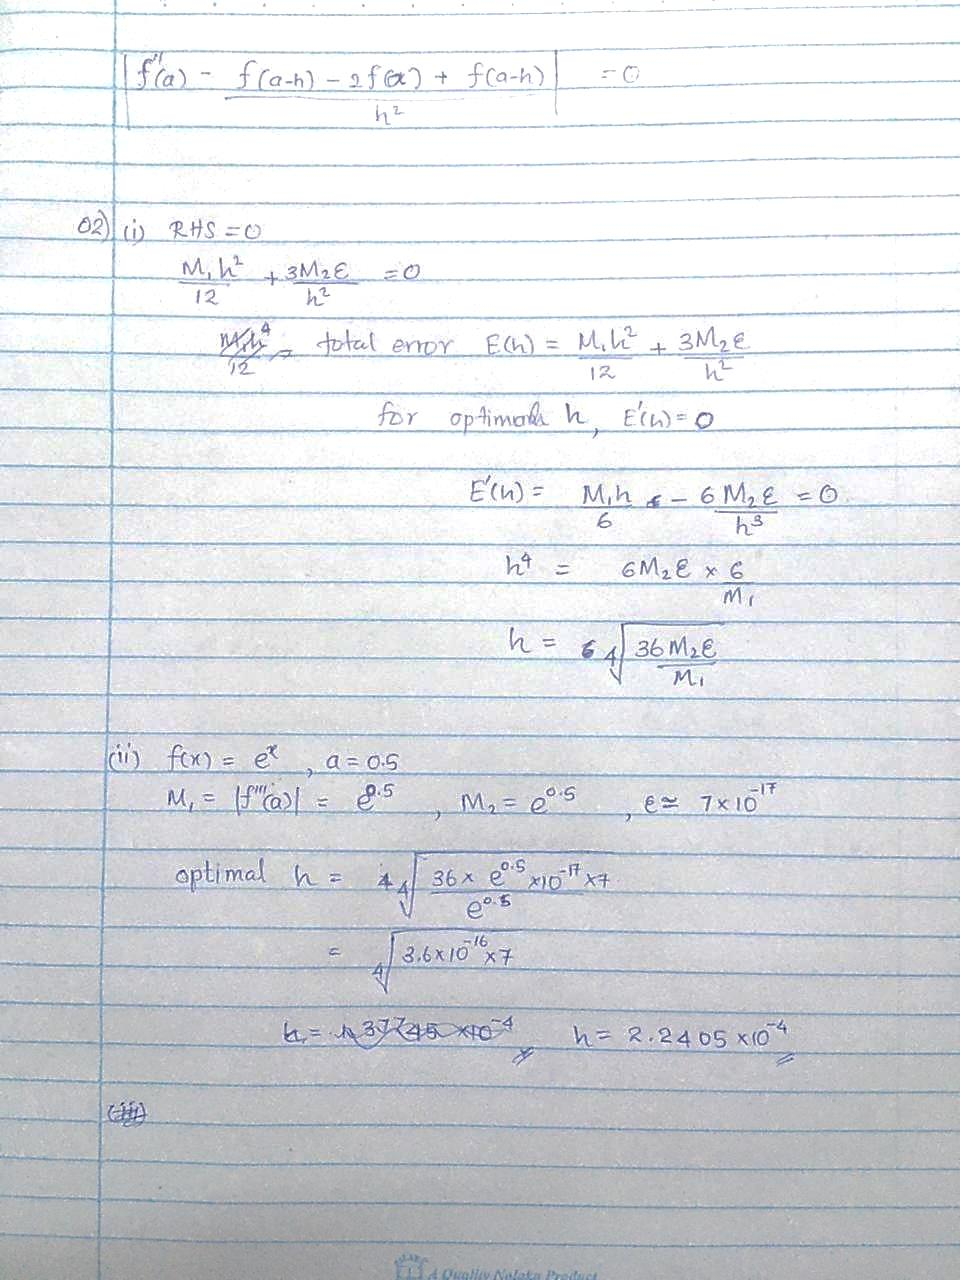 |f''(a) - (f(a-h) - 2f(a) + f(a-h))/h²| = 0
02) (i) RHS = 0
M₁h²/12 + 3M₂ε/h² = 0
M₁h⁴/12 = total error E(h) = M₁h²/12 + 3M₂ε/h²
for optimal h, E'(h) = 0
E'(h) = M₁h/6 - 6M₂ε/h³ = 0
h⁴ = 6M₂ε × 6/M₁
h = ⁴√(36M₂ε/M₁)
(ii) f(x) = eˣ, a = 0.5
M₁ = |f''''(a)| = e^0.5, M₂ = e^0.5, ε ≃ 7×10⁻¹⁷
optimal h = ⁴√(36 × e^0.5 × 10⁻¹⁷ × 7 / e^0.5)
= ⁴√(3.6×10⁻¹⁶ × 7)
h = 2.2405 × 10⁻⁴
(iii)
A Quality Nataka Product